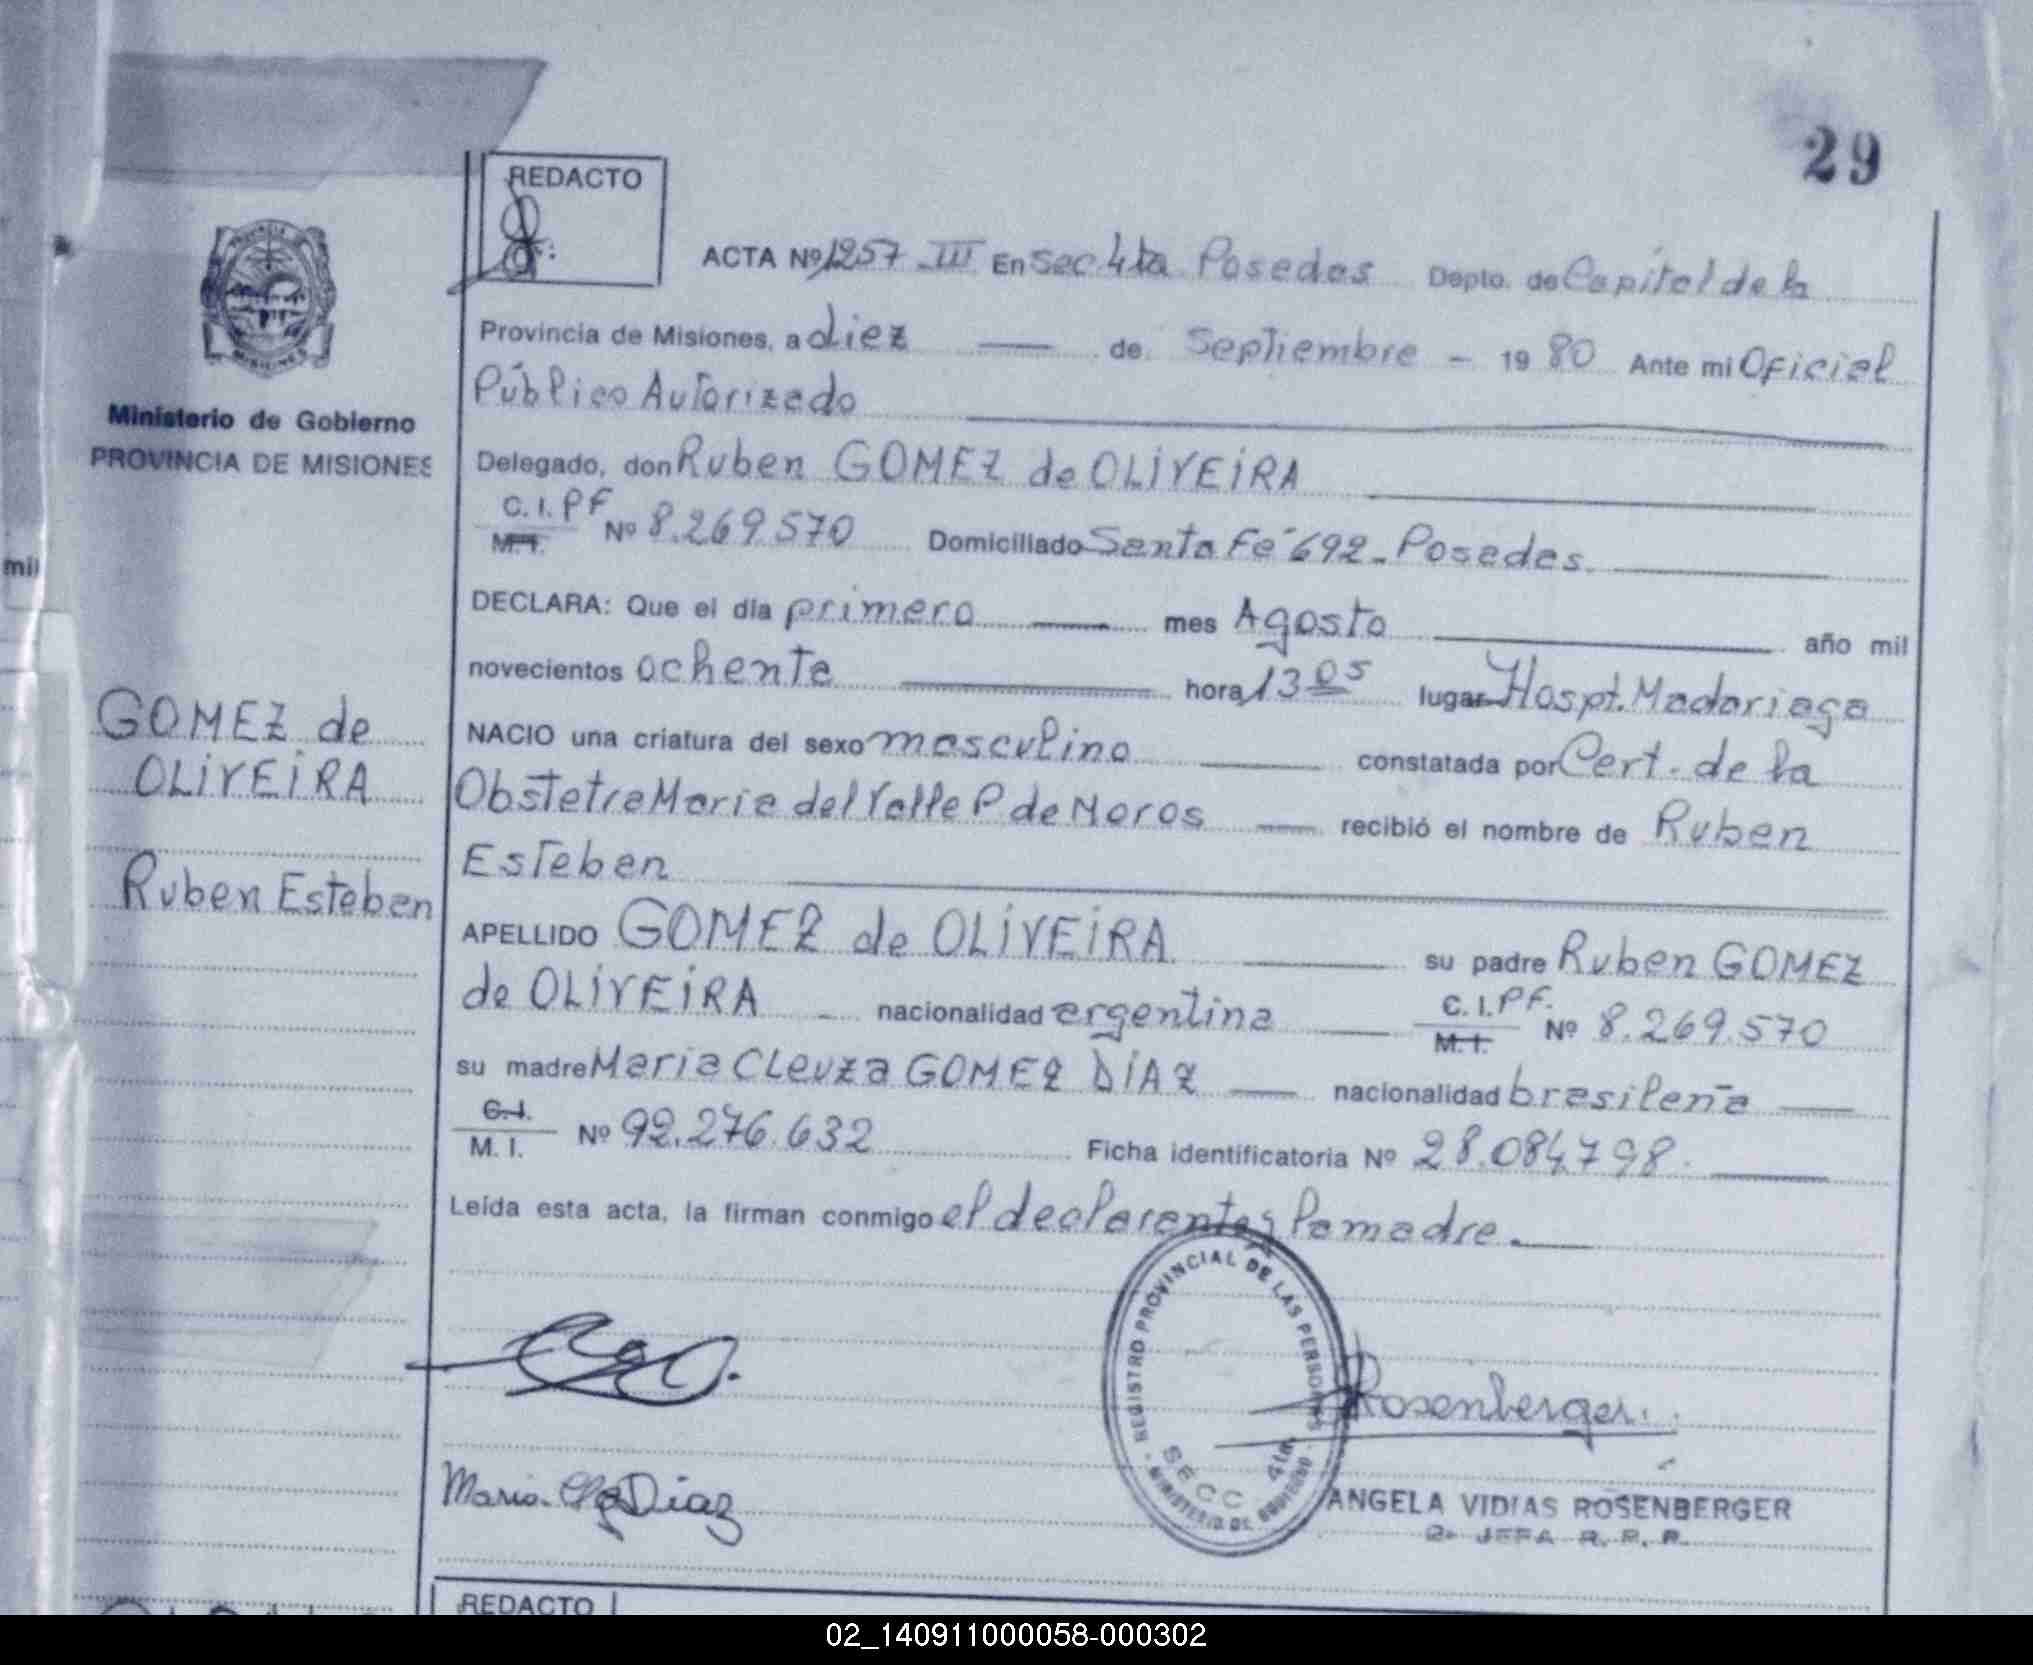 29
REDACTO
ACTA Nº 1257 - III En Sec 4ta Posadas Depto. de Capital de la
Provincia de Misiones, a diez de Septiembre - 1980 Ante mi Oficial
Público Autorizado
Delegado, don Ruben GOMEZ de OLIVEIRA
C. I. PF
M. I. Nº 8.269.570 Domiciliado Santa Fe 692 - Posadas.
DECLARA: Que el dia primero mes Agosto año mil
novecientos ochenta hora 13 05 lugar Hospt. Madariaga
NACIO una criatura del sexo masculino constatada por Cert. de la
Obstetra Maria del Valle P de Moros recibió el nombre de Ruben
Esteban
APELLIDO GOMEZ de OLIVEIRA su padre Ruben GOMEZ
de OLIVEIRA - nacionalidad argentina C. I. PF.
M. I. Nº 8.269.570
su madre Maria Cleuza GOMEZ DIAZ nacionalidad brasileña
C. I.
M. I. Nº 92.276.632 Ficha identificatoria Nº 28.084.798.
Leída esta acta, la firman conmigo el declarante y la madre.
PROVINCIA DE
MISIONES
Ministerio de Gobierno
PROVINCIA DE MISIONES
mil
GOMEZ de
OLIVEIRA
Ruben Esteban
REGISTRO PROVINCIAL DE LAS PERSONAS
SECC 4ta
MINISTERIO DE GOBIERNO
Rosenberger
Maria Diaz
ANGELA VIDIAS ROSENBERGER
2a JEFA R. P. P.
REDACTO
02_140911000058-000302